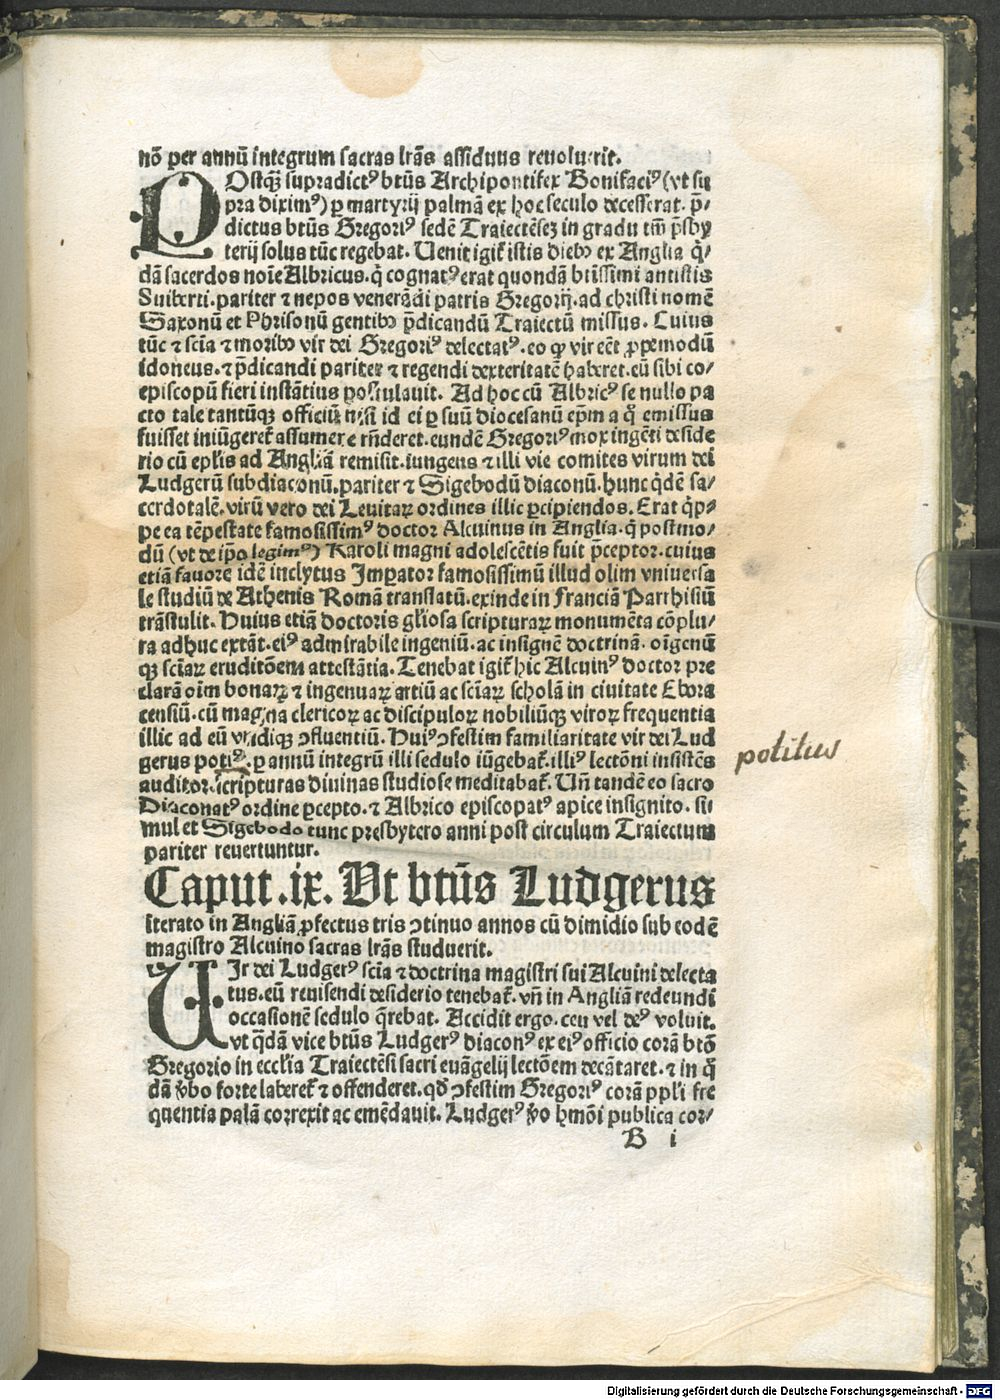 nō per annū integrum sacras lrās assiduus reuoluerit.
POstq̄ supradictꝰ btūs Archipontifex Bonifaciꝰ (vt su
pra diximꝰ) ꝑ martyrij palmā ex hoc seculo decesserat. p̄-
dictus btūs Gregoriꝰ sedē Traiectēsez in gradu tm̄ p̄sby
terij solus tūc regebat. Uenit igit̄ istis diebꝰ ex Anglia q̄-
dā sacerdos noīe Albricus. q̇ cognatꝰ erat quondā btīssimi antistis
Suiberti. pariter ⁊ nepos venerādi patris Gregorij. ad christi nomē
Saxonū et Phrisonū gentibꝰ p̄dicandū Traiectū missus. Cuius
tūc ⁊ scīa ⁊ moribꝰ vir dei Gregoriꝰ delectatꝰ. eo ꝙ vir eēt ꝓpemodū
idoneus. ⁊ p̄dicandi pariter ⁊ regendi dexteritatē haberet. eū sibi co-
episcopū fieri instātius postulauit. Ad hoc cū Albricꝰ se nullo pa
cto tale tantūqꝫ officiū nisi id ei ꝑ suū diocesanū ep̄m a q̄ emissus
fuisset iniūgeret̄ assumere rn̄deret. eundē Gregoriꝰ mox ingēti deside
rio cū ep̄lis ad Angliā remisit. iungens ⁊ illi vie comites virum dei
Ludgerū subdiaconū. pariter ⁊ Sigebodū diaconū. hunc q̄dē sa-
cerdotalē. virū vero dei Leuitaꝝ ordines illic ꝑcipiendos. Erat q̇p-
pe ea tēpestate famosissimꝰ doctor Alcuinus in Anglia. q̇ postmo-
dū (vt de ip̄o legimꝰ) Karoli magni adolescētis fuit p̄ceptor. cuius
etiā fauore idē inclytus Imꝑator famosissimū illud olim vniuersa
le studiū de Athenis Romā translatū. exinde in Franciā Parrhisiū
trāstulit. Huius etiā doctoris gl̄iosa scripturaꝝ monumēta cōplu-
ra adhuc extāt. eiꝰ admirabile ingeniū. ac insignē doctrinā. oīgenū
qꝫ scīaꝝ eruditōem attestātia. Tenebat igit̄ hic Alcuinꝰ doctor pre
clarā oīm bonaꝝ ⁊ ingenuaꝝ artiū ac scīaꝝ scholā in ciuitate Ebora
censiū. cū magna clericoꝝ ac discipuloꝝ nobiliūqꝫ viroꝝ frequentia
illic ad eū vndiqꝫ ꝯfluentiū. Huiꝰ ꝯfestim familiaritate vir dei Lud
gerus potiꝰ. ꝑ annū integrū illi sedulo iūgebat̄. illiꝰ lectōni insistēs
auditor. scripturas diuinas studiose meditabat̄. Un̄ tandē eo sacro
Diaconatꝰ ordine ꝑcepto. ⁊ Albrico episcopatꝰ apice insignito. si-
mul et Sigebodo tunc presbytero anni post circulum Traiectum
pariter reuertuntur.
potitus
Caput .ix. Ut btūs Ludgerus
iterato in Angliā ꝓfectus tris ꝯtinuo annos cū dimidio sub eodē
magistro Alcuino sacras lrās studuerit.
UIr dei Ludgerꝰ scīa ⁊ doctrina magistri sui Alcuini delecta
tus. eū reuisendi desiderio tenebat̄. vn̄ in Angliā redeundi
occasionē sedulo q̄rebat. Accidit ergo. ceu vel deꝰ voluit.
vt q̄dā vice btūs Ludgerꝰ diaconꝰ ex eiꝰ officio corā btō
Gregorio in eccl̄ia Traiectēsi sacri euāgelij lectōem decātaret. ⁊ in q̄
dā v̄bo forte laberet̄ ⁊ offenderet. qd̄ ꝯfestim Gregoriꝰ corā ppl̄i fre
quentia palā correxit ac emēdauit. Ludgerꝰ v̄o hmōi publica cor-
B i
Digitalisierung gefördert durch die Deutsche Forschungsgemeinschaft - DFG